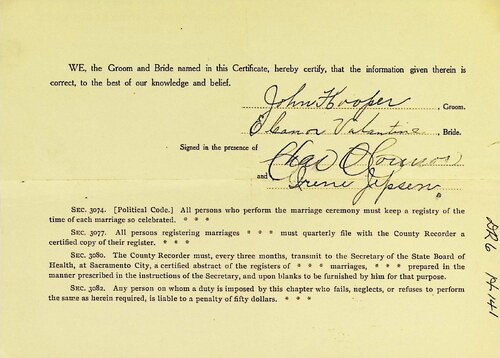 WE, the Groom and Bride named in this Certificate, hereby certify, that the information given therein is
correct, to the best of our knowledge and belief.
John Hooper, Groom.
Eleanor Valentine, Bride.
Signed in the presence of
Chas O Connor
and Irene Jepsen
SEC. 3074. [Political Code.] All persons who perform the marriage ceremony must keep a registry of the
time of each marriage so celebrated. * * *
SEC. 3077. All persons registering marriages * * * must quarterly file with the County Recorder a
certified copy of their register. * * *
SEC. 3080. The County Recorder must, every three months, transmit to the Secretary of the State Board of
Health, at Sacramento City, a certified abstract of the registers of * * * marriages, * * * prepared in the
manner prescribed in the instructions of the Secretary, and upon blanks to be furnished by him for that purpose.
SEC. 3082. Any person on whom a duty is imposed by this chapter who fails, neglects, or refuses to perform
the same as herein required, is liable to a penalty of fifty dollars. * * *